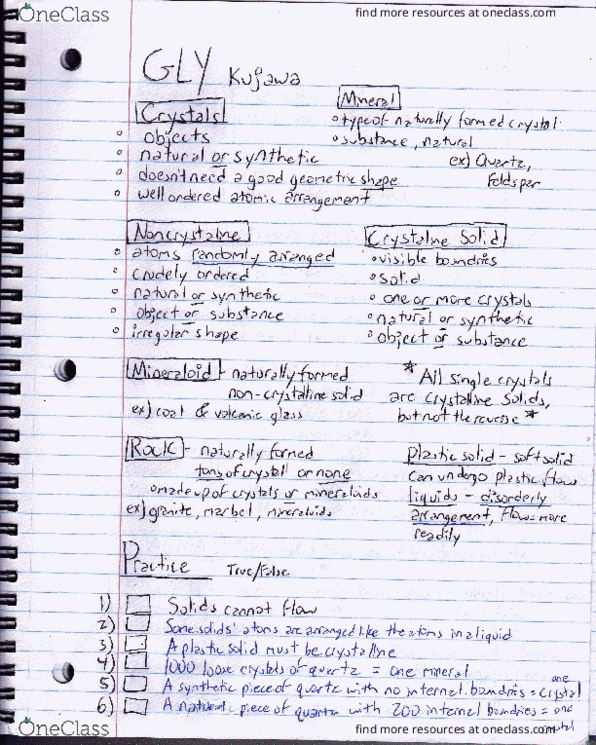 OneClass
find more resources at oneclass.com
GLY Kujawa
Crystals
objects
natural or synthetic
doesn't need a good geometric shape
well ordered atomic arrangement
Mineral
type of naturally formed crystal
substance, natural
ex) Quartz,
Feldspar
Noncrystalne
atoms randomly arranged
crudely ordered
natural or synthetic
object or substance
irregular shape
Crystalne Solid
visible boundries
solid
one or more crystals
natural or synthetic
object or substance
Mineraloid - naturally formed
non-crystalline solid
ex) coal & volcanic glass
* All single crystals
are crystalline solids,
but not the reverse *
Rock - naturally formed
tons of crystal or none
made up of crystals or mineraloids
ex) granite, marbel, mineraloids
plastic solid - soft solid
can undergo plastic flow
liquids - disorderly
arrangement, flows more
readily
Practice True/False
1) Solids cannot flow
2) Some solids' atoms are arranged like the atoms in a liquid
3) A plastic solid must be crystalline
4) 1000 loose crystals of quartz = one mineral
5) A synthetic piece of quartz with no internal boundries = one crystal
6) A natural piece of quartz with 200 internal boundries = one
crystal
OneClass
find more resources at oneclass.com